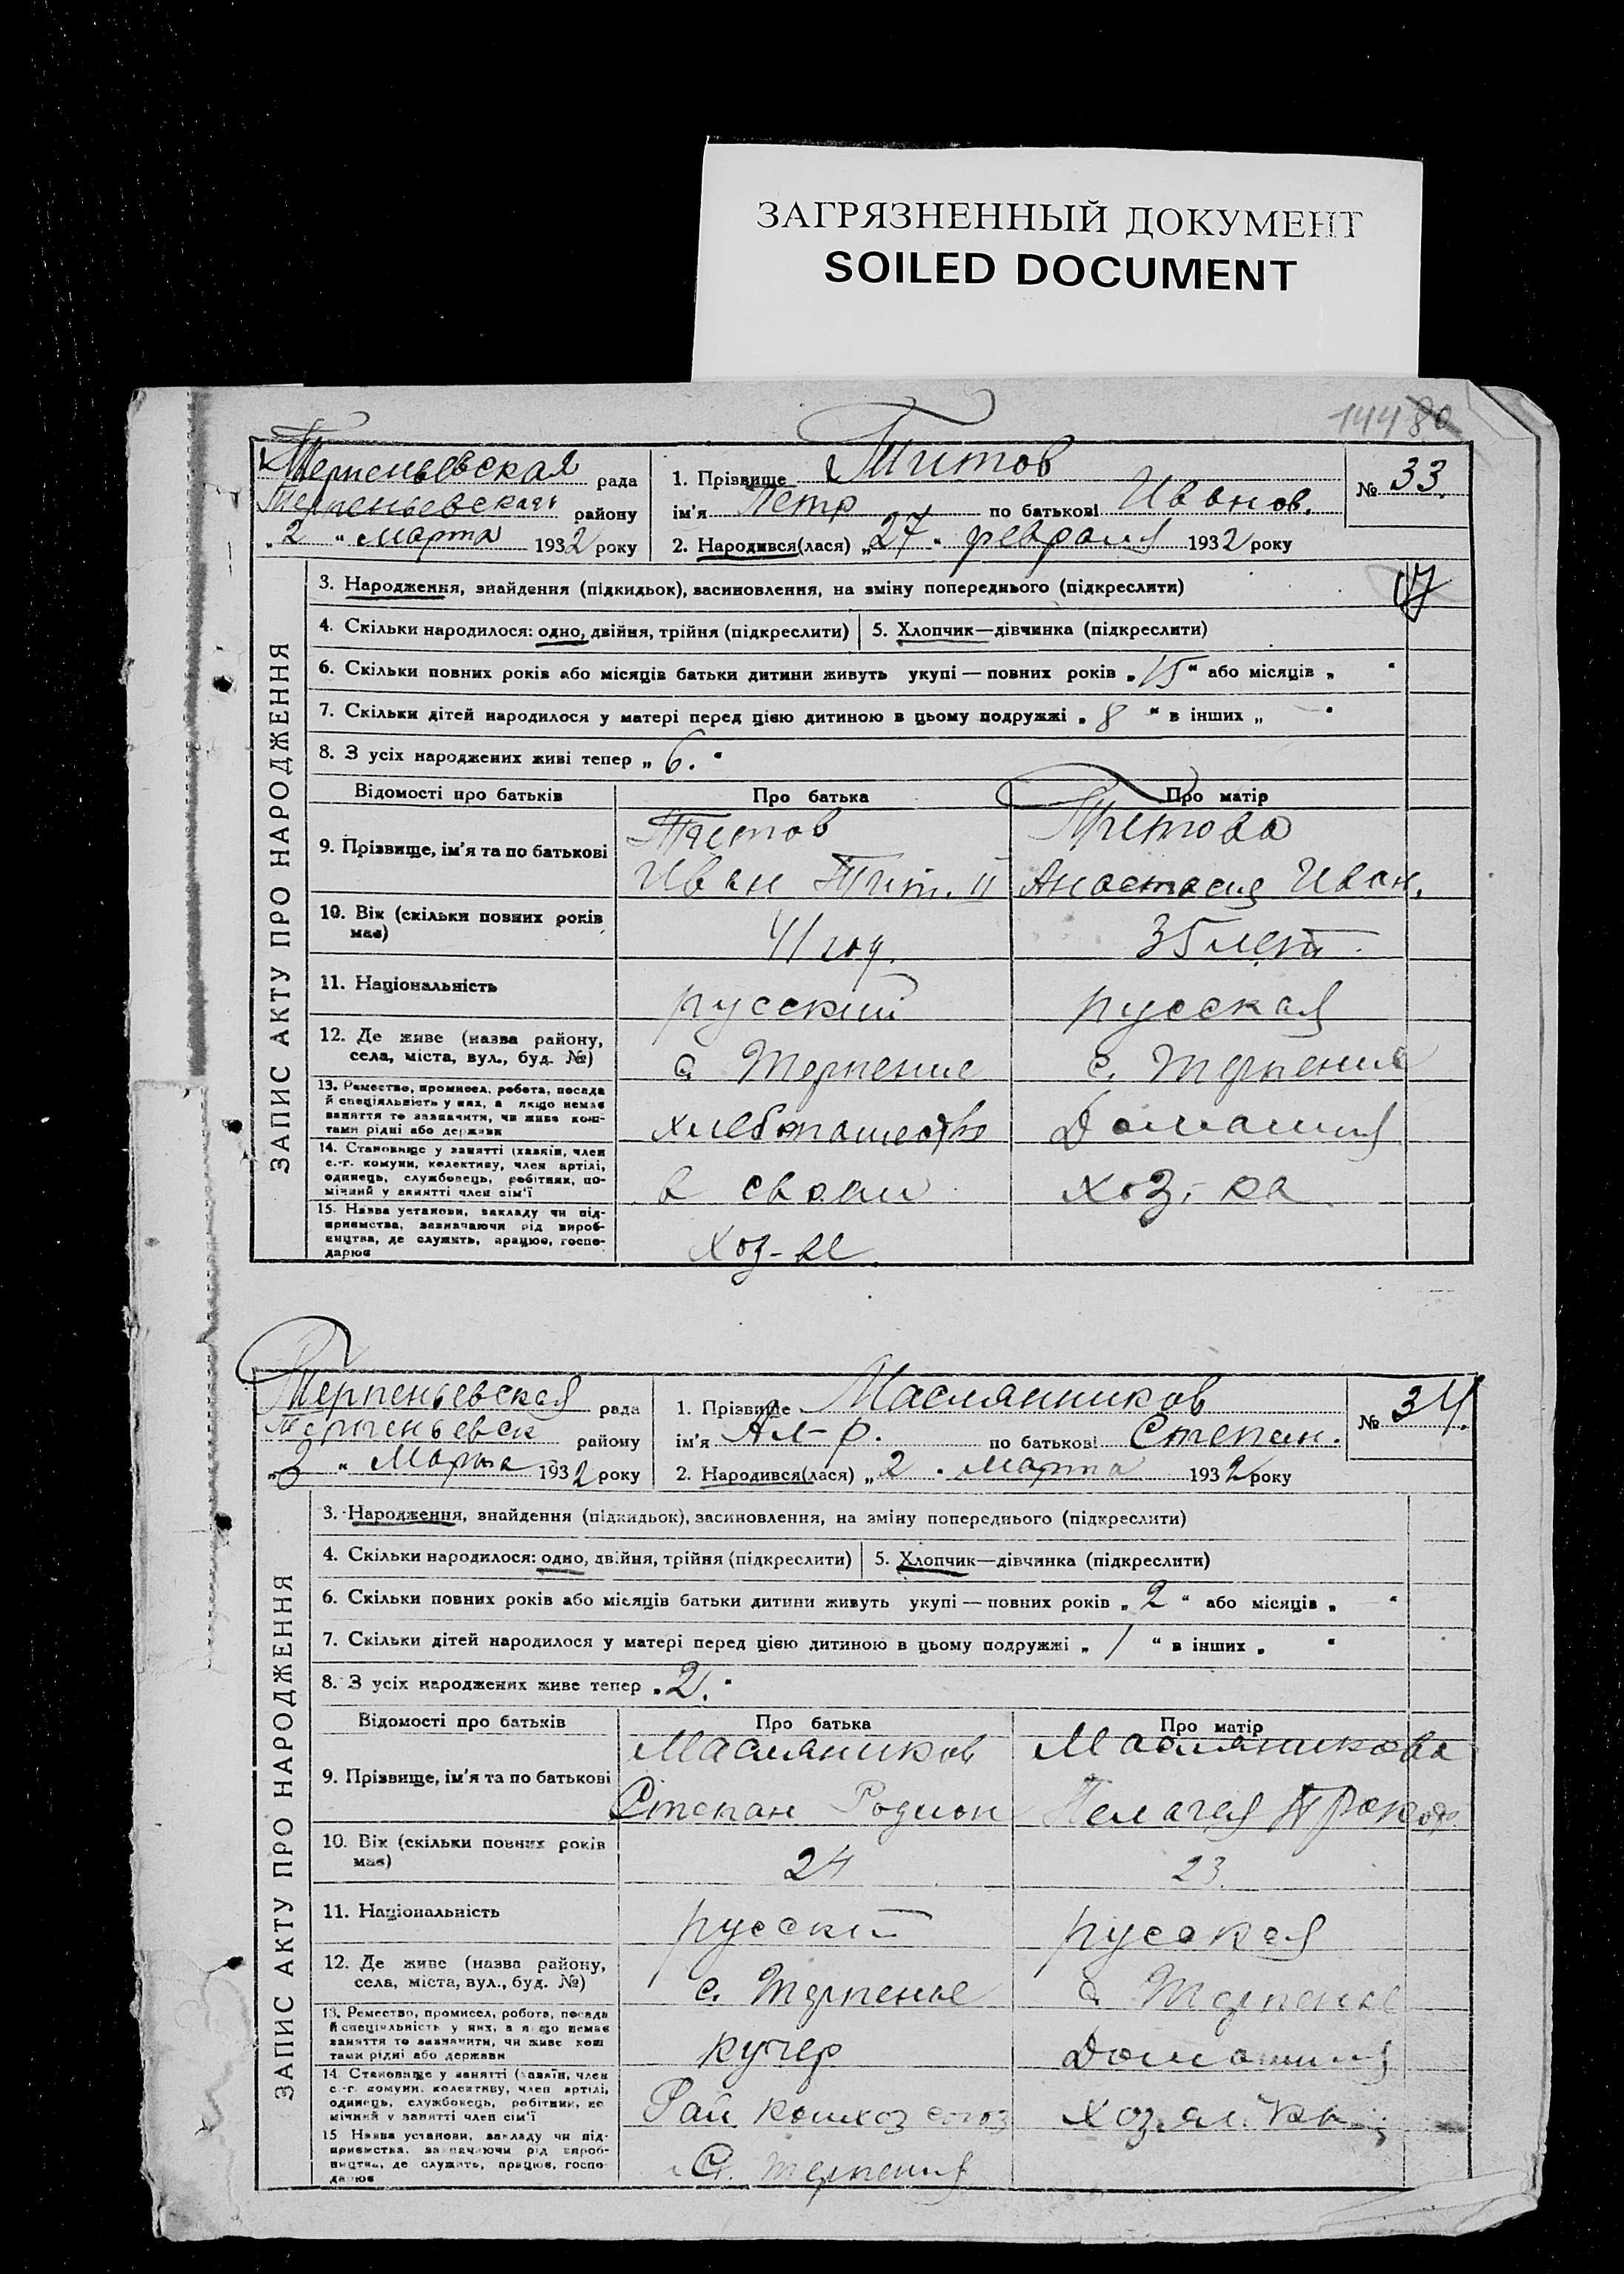 ЗАГРЯЗНЕННЫЙ ДОКУМЕНТ
SOILED DOCUMENT
144 80
Терпеньевская рада
Терпеньевская району
„2“ марта 1932 року
1. Прізвище Титов
ім'я Петр по батькові Иванов.
2. Народився(лася) „27“ февраля 1932 року
№ 33.
ЗАПИС АКТУ ПРО НАРОДЖЕННЯ
3. Народження, знайдення (підкидьок), засиновлення, на зміну попереднього (підкреслити)
4. Скільки народилося: одно, двійня, трійня (підкреслити) 5. Хлопчик—дівчинка (підкреслити)
6. Скільки повних років або місяців батьки дитини живуть укупі — повних років „15“ або місяців „ “
7. Скільки дітей народилося у матері перед цією дитиною в цьому подружжі „8“ в інших „—“
8. З усіх народжених живі тепер „6.“
Відомості про батьків Про батька Про матір
9. Прізвище, ім'я та по батькові
Титов Титова
Иван Тит. II Анастасия Иван.
10. Вік (скільки повних років має)
41 год. 35 лет.
11. Національність
русский русская
12. Де живе (назва району, села, міста, вул., буд. №)
с. Терпение с. Терпение
13. Ремество, промисел, робота, посада й спеціяльність у них, а якщо немає заняття то зазначити, чи живе коштами рідні або держави
хлебопашество Домашняя
14. Становище у занятті (хазяїн, член с.-г. комуни, колективу, член артілі, одинець, службовець, робітник, помічний у занятті член сім'ї
в своем хоз-ка
15. Назва установи, закладу чи підприємства, зазначаючи рід виробництва, де служить, працює, господарює
хоз-ве
Терпеньевская рада
Терпеньевск району
„3“ Марта 1932 року
1. Прізвище Маслянников
ім'я Ал-р. по батькові Степан.
2. Народився(лася) „2“ марта 1932 року
№ 34.
ЗАПИС АКТУ ПРО НАРОДЖЕННЯ
3. Народження, знайдення (підкидьок), засиновлення, на зміну попереднього (підкреслити)
4. Скільки народилося: одно, двійня, трійня (підкреслити) 5. Хлопчик—дівчинка (підкреслити)
6. Скільки повних років або місяців батьки дитини живуть укупі — повних років „2“ або місяців „ “
7. Скільки дітей народилося у матері перед цією дитиною в цьому подружжі „1“ в інших „ “
8. З усіх народжених живе тепер „2.“
Відомості про батьків Про батька Про матір
9. Прізвище, ім'я та по батькові
Масляников Масляникова
Степан Родион Пелагея Прокоф.
10. Вік (скільки повних років має)
24 23.
11. Національність
русский русская
12. Де живе (назва району, села, міста, вул., буд. №)
с. Терпенье с. Терпенье
13. Ремество, промисел, робота, посада й спеціяльність у них, а якщо немає заняття то зазначити, чи живе коштами рідні або держави
кучер Домашняя
14. Становище у занятті (хазяїн, член с.-г. комуни, колективу, член артілі, одинець, службовець, робітник, помічний у занятті член сім'ї
Рай колхоз союз хозяй. ка
15. Назва установи, закладу чи підприємства, зазначаючи рід виробництва, де служить, працює, господарює
С. Терпения